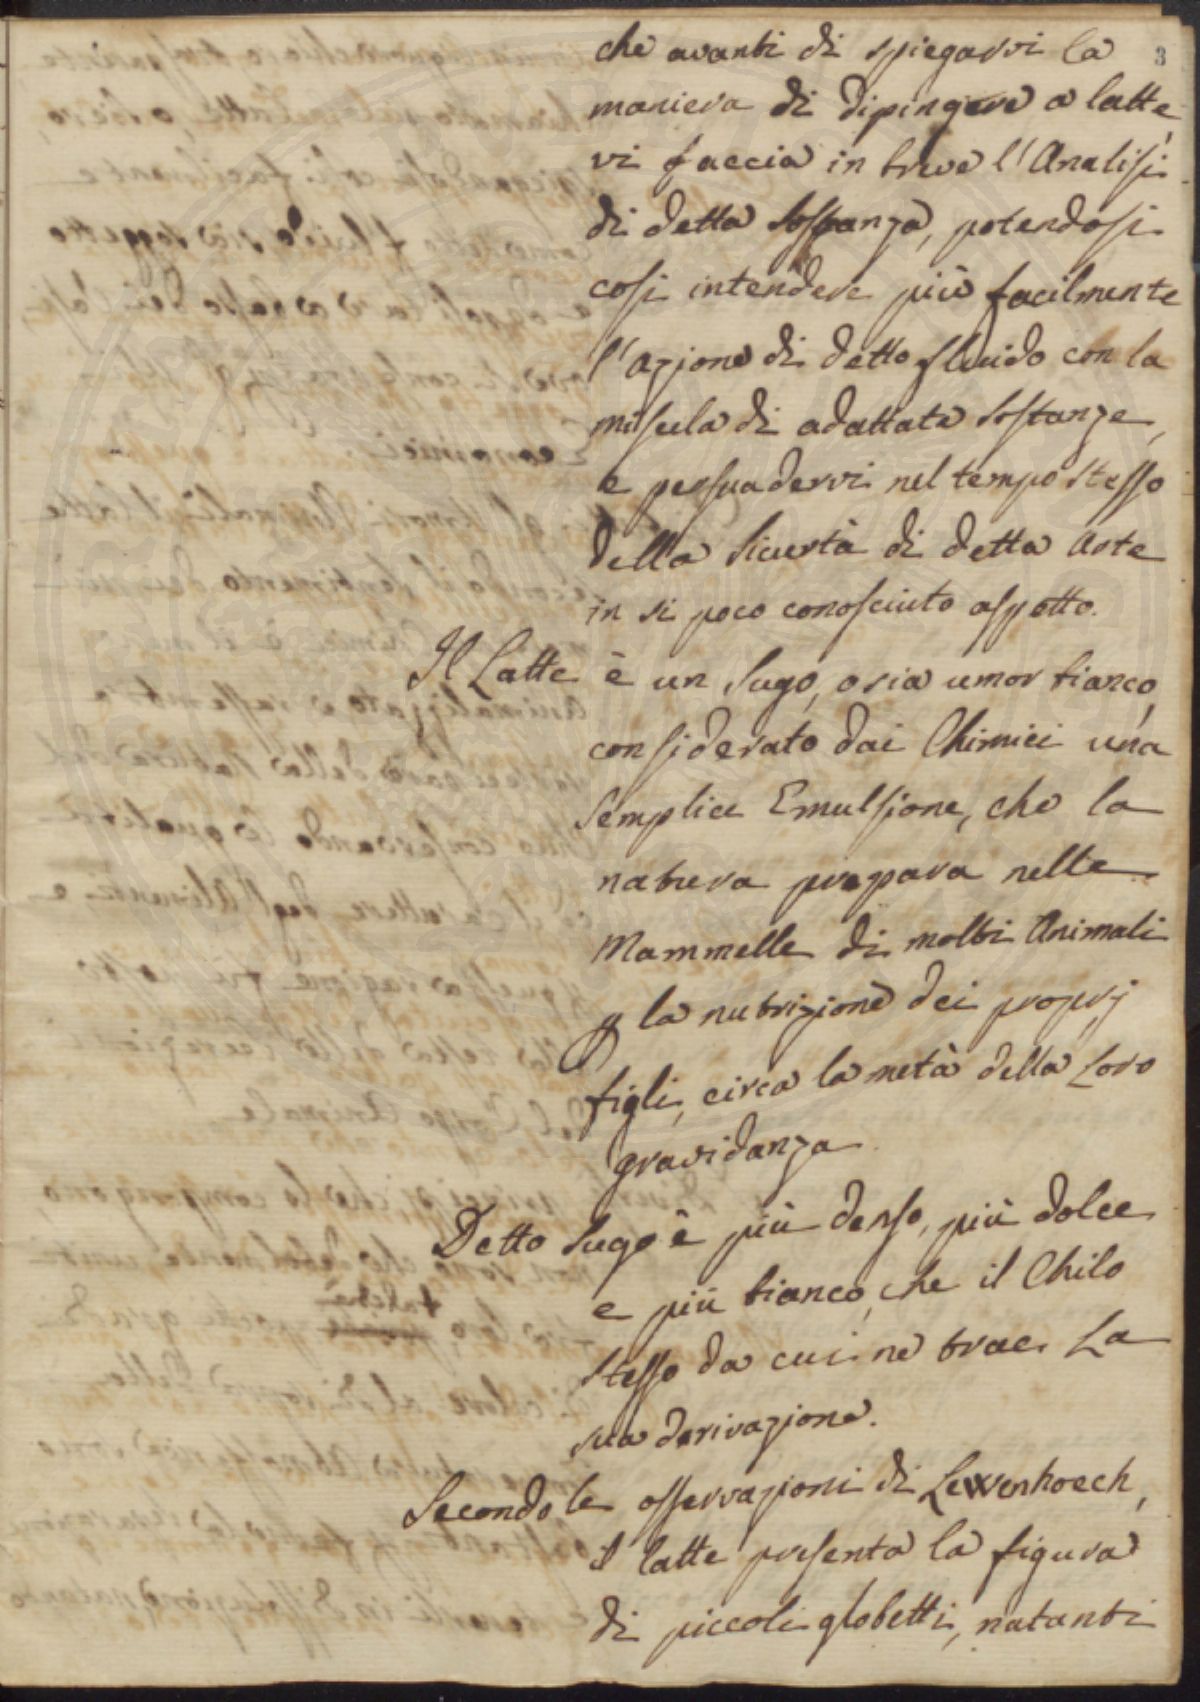 3
che avanti di spiegarvi la
maniera di dipingere a latte,
vi faccia in breve l'Analisi
di detta sostanza, potendosi
così intendere più facilmente
l'azione di detto fluido con la
miscela di adattate sostanze,
e persuadervi nel tempo stesso
della sicurtà di detta Arte
in si poco conosciuto aspetto.
Il Latte è un sugo, o sia umor bianco,
considerato dai Chimici una
semplice Emulsione, che la
natura prepara nelle
Mammelle di molti Animali
p la nutrizione dei proprj
figli, circa la metà della Loro
gravidanza.
Detto sugo è più denso, più dolce
e più bianco, che il Chilo
stesso da cui ne trae La
sua derivazione.
Secondo le osservazioni di Lewenhoech,
il latte presenta la figura
di piccoli globetti, natanti